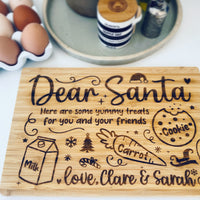 Dear Santa
Here are some yummy treats
for you and your friends
Cookie
Carrot
Milk
Love, Clare & Sarah